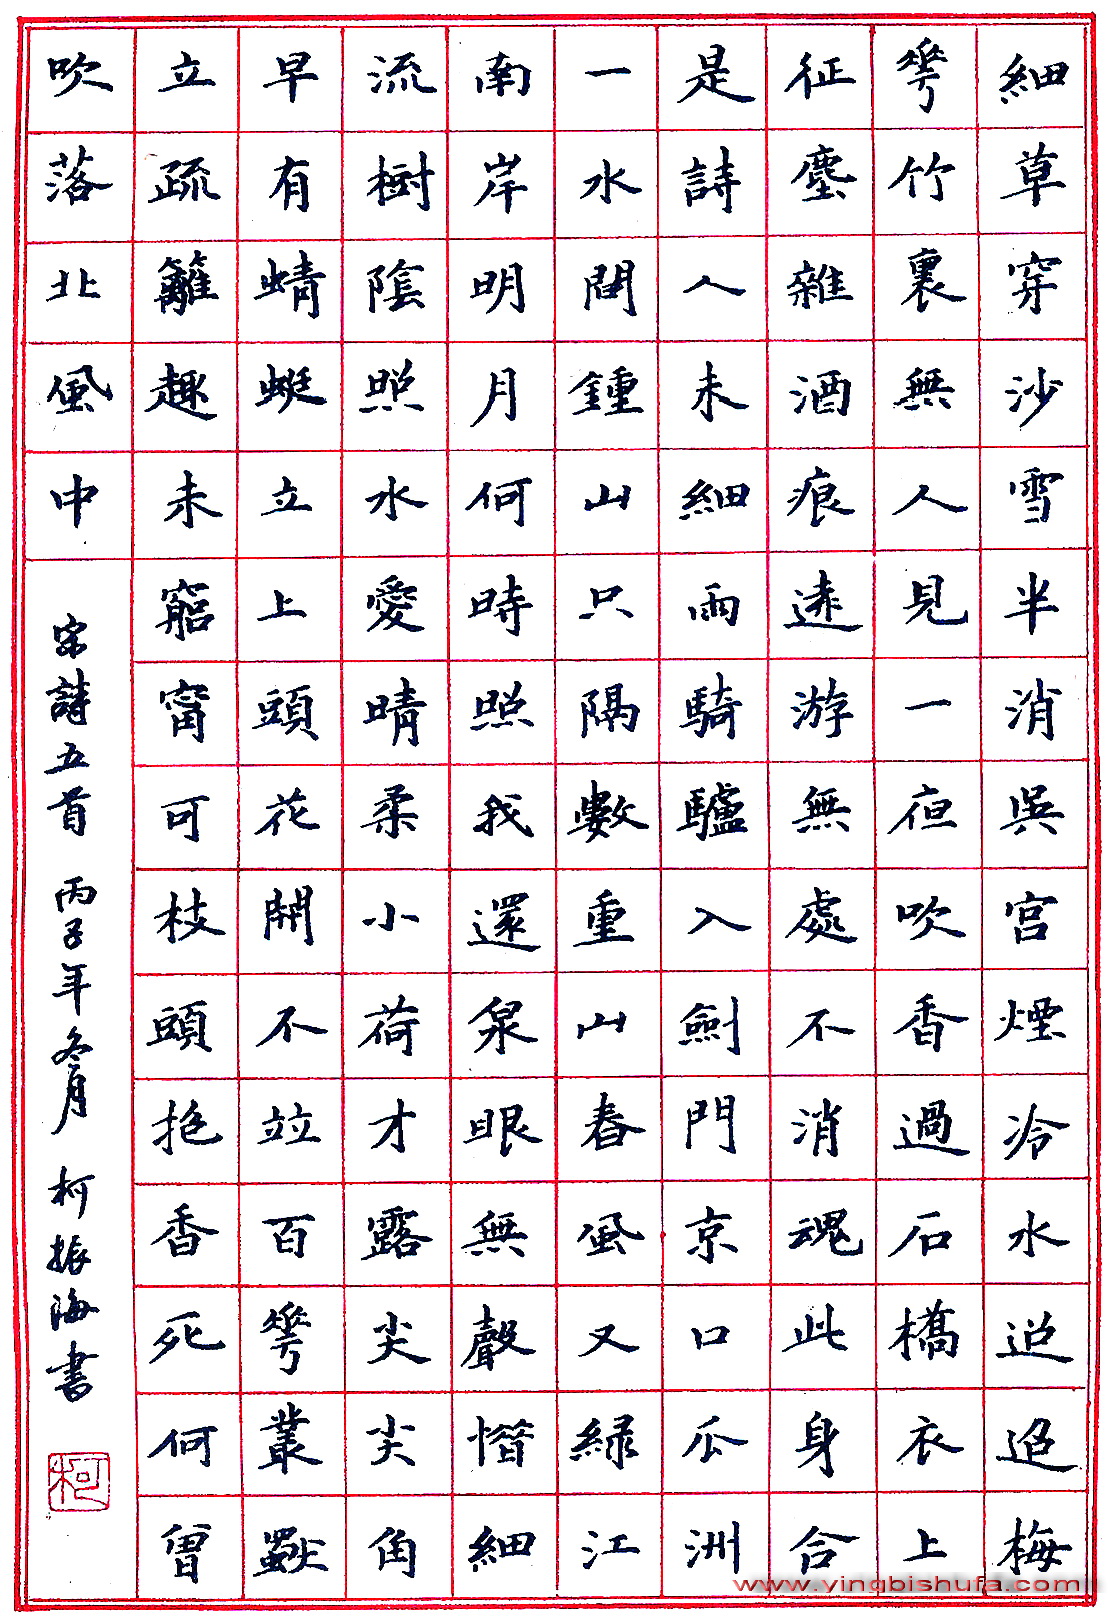 細草穿沙雪半消吳宮煙冷水迢迢梅
華竹裏無人見一夜吹香過石橋衣上
征塵雜酒痕遠游無處不消魂此身合
是詩人未細雨騎驢入劍門京口瓜洲
一水間鍾山只隔數重山春風又綠江
南岸明月何時照我還泉眼無聲惜細
流樹陰照水愛晴柔小荷才露尖尖角
早有蜻蜓立上頭花開不竝百華叢獨
立疏籬趣未窮甯可枝頭抱香死何曾
吹落北風中
宋詩五首 丙子年冬月 柯振海書
柯
www.yingbishufa.com